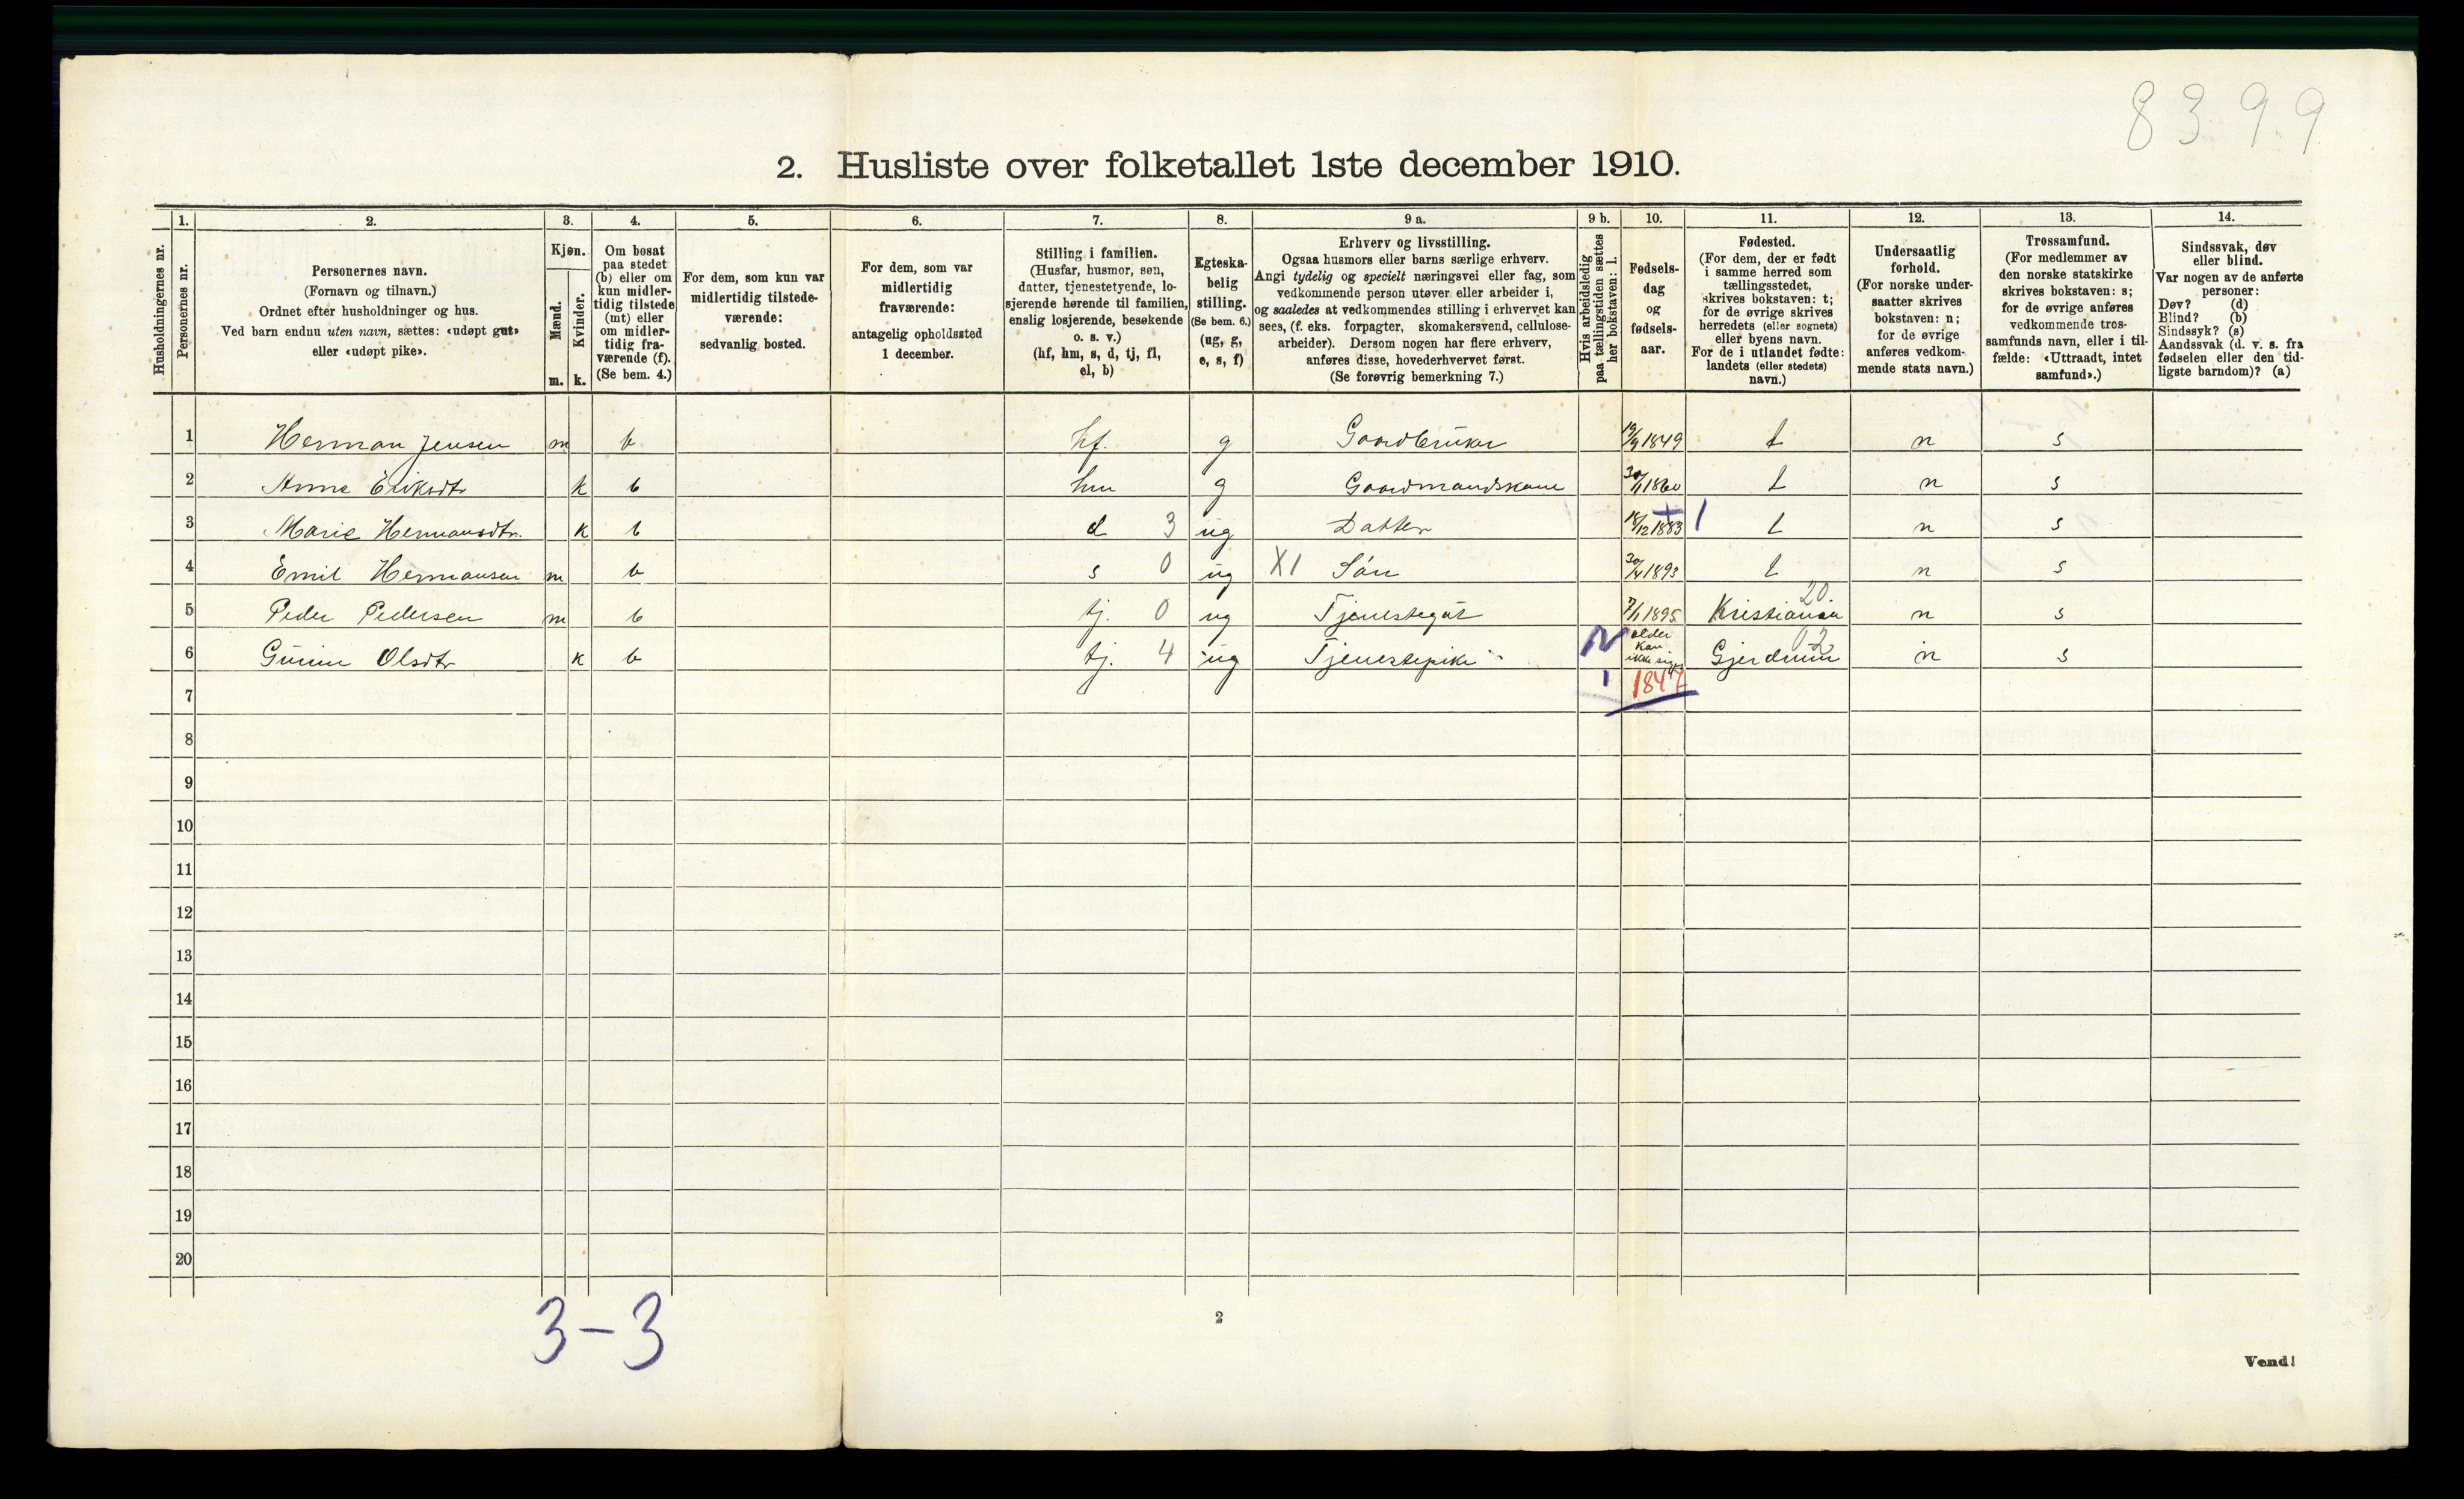 8399
2. Husliste over folketallet 1ste december 1910.
Husholdningernes nr.
1.
Personernes nr.
2.
Personernes navn.
(Fornavn og tilnavn.)
Ordnet efter husholdninger og hus.
Ved barn endnu uten navn, sættes: «udøpt gut»
eller «udøpt pike».
3.
Kjøn.
Mænd.
Kvinder.
m. k.
4.
Om bosat
paa stedet
(b) eller om
kun midler-
tidig tilstede
(mt) eller
om midler-
tidig fra-
værende (f).
(Se bem. 4.)
5.
For dem, som kun var
midlertidig tilstede-
værende:
sedvanlig bosted.
6.
For dem, som var
midlertidig
fraværende:
antagelig opholdssted
1 december.
7.
Stilling i familien.
(Husfar, husmor, søn,
datter, tjenestetyende, lo-
sjerende hørende til familien,
enslig losjerende, besøkende
o. s. v.)
(hf, hm, s, d, tj, fl,
el, b)
8.
Egteska-
belig
stilling.
(Se bem. 6.)
(ug, g,
e, s, f)
9 a.
Erhverv og livsstilling.
Ogsaa husmors eller barns særlige erhverv.
Angi tydelig og specielt næringsvei eller fag, som
vedkommende person utøver eller arbeider i,
og saaledes at vedkommendes stilling i erhvervet kan
sees, (f. eks. forpagter, skomakersvend, cellulose-
arbeider). Dersom nogen har flere erhverv,
anføres disse, hovederhvervet først.
(Se forøvrig bemerkning 7.)
9 b.
Hvis arbeidsledig
paa tællingstiden sættes
her bokstaven: l.
10.
Fødsels-
dag
og
fødsels-
aar.
11.
Fødested.
(For dem, der er født
i samme herred som
tællingsstedet,
skrives bokstaven: t;
for de øvrige skrives
herredets (eller sognets)
eller byens navn.
For de i utlandet fødte:
landets (eller stedets)
navn.)
12.
Undersaatlig
forhold.
(For norske under-
saatter skrives
bokstaven: n;
for de øvrige
anføres vedkom-
mende stats navn.)
13.
Trossamfund.
(For medlemmer av
den norske statskirke
skrives bokstaven: s;
for de øvrige anføres
vedkommende tros-
samfunds navn, eller i til-
fælde: «Uttraadt, intet
samfund».)
14.
Sindssvak, døv
eller blind.
Var nogen av de anførte
personer:
Døv? (d)
Blind? (b)
Sindssyk? (s)
Aandssvak (d. v. s. fra
fødselen eller den tid-
ligste barndom)? (a)
1 Herman Jensen m b hf. g Gaardbruker 19/9 1849 t n s
2 Anne Eriksdtr k b hm g Gaardmandskone 30/1 1860 t n s
3 Marie Hermansdtr. k b d 3 ug Datter 18/12 1883 t n s
4 Emil Hermansen m b s 0 ug X1 Søn 30/4 1893 t n s
5 Peder Pedersen m b tj. 0 ug Tjenestegut 7/1 1895 Kristiania 20. n s
6 Olsdtr k b tj. 4 ug Tjenestepike alder kan ikke Gjerdrum 02 n s
7 184
8
9
10
11
12
13
14
15
16
17
18
19
20
3-3
2
Vend!